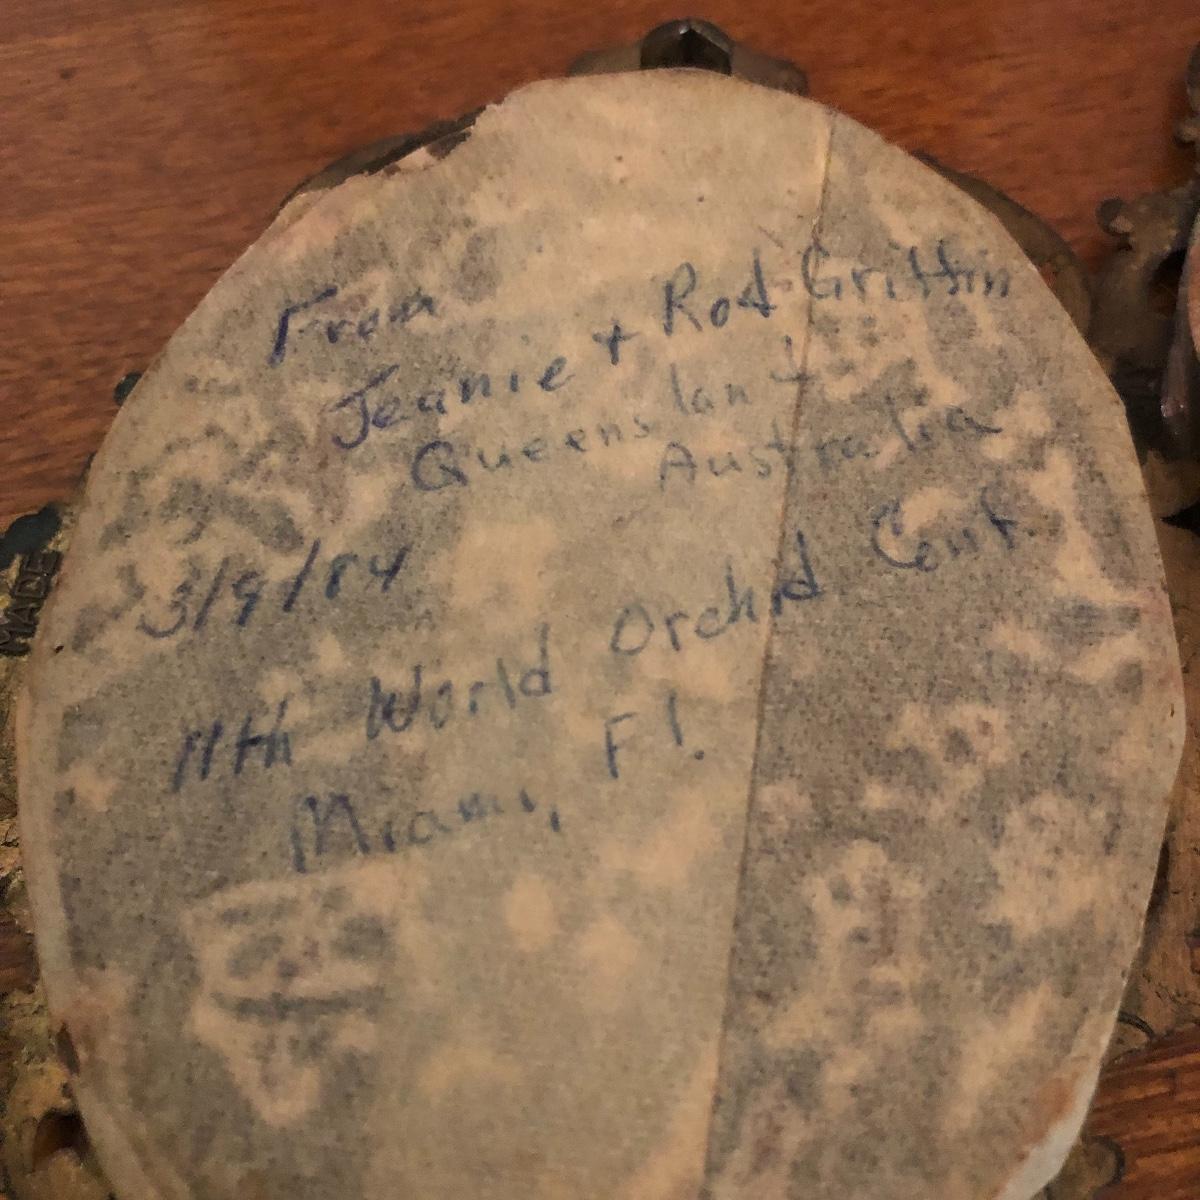 From
Jeanie + Rod Griffin
Queensland
Australia
3/9/84
11th World Orchid Conf.
Miami, Fl.
MADE